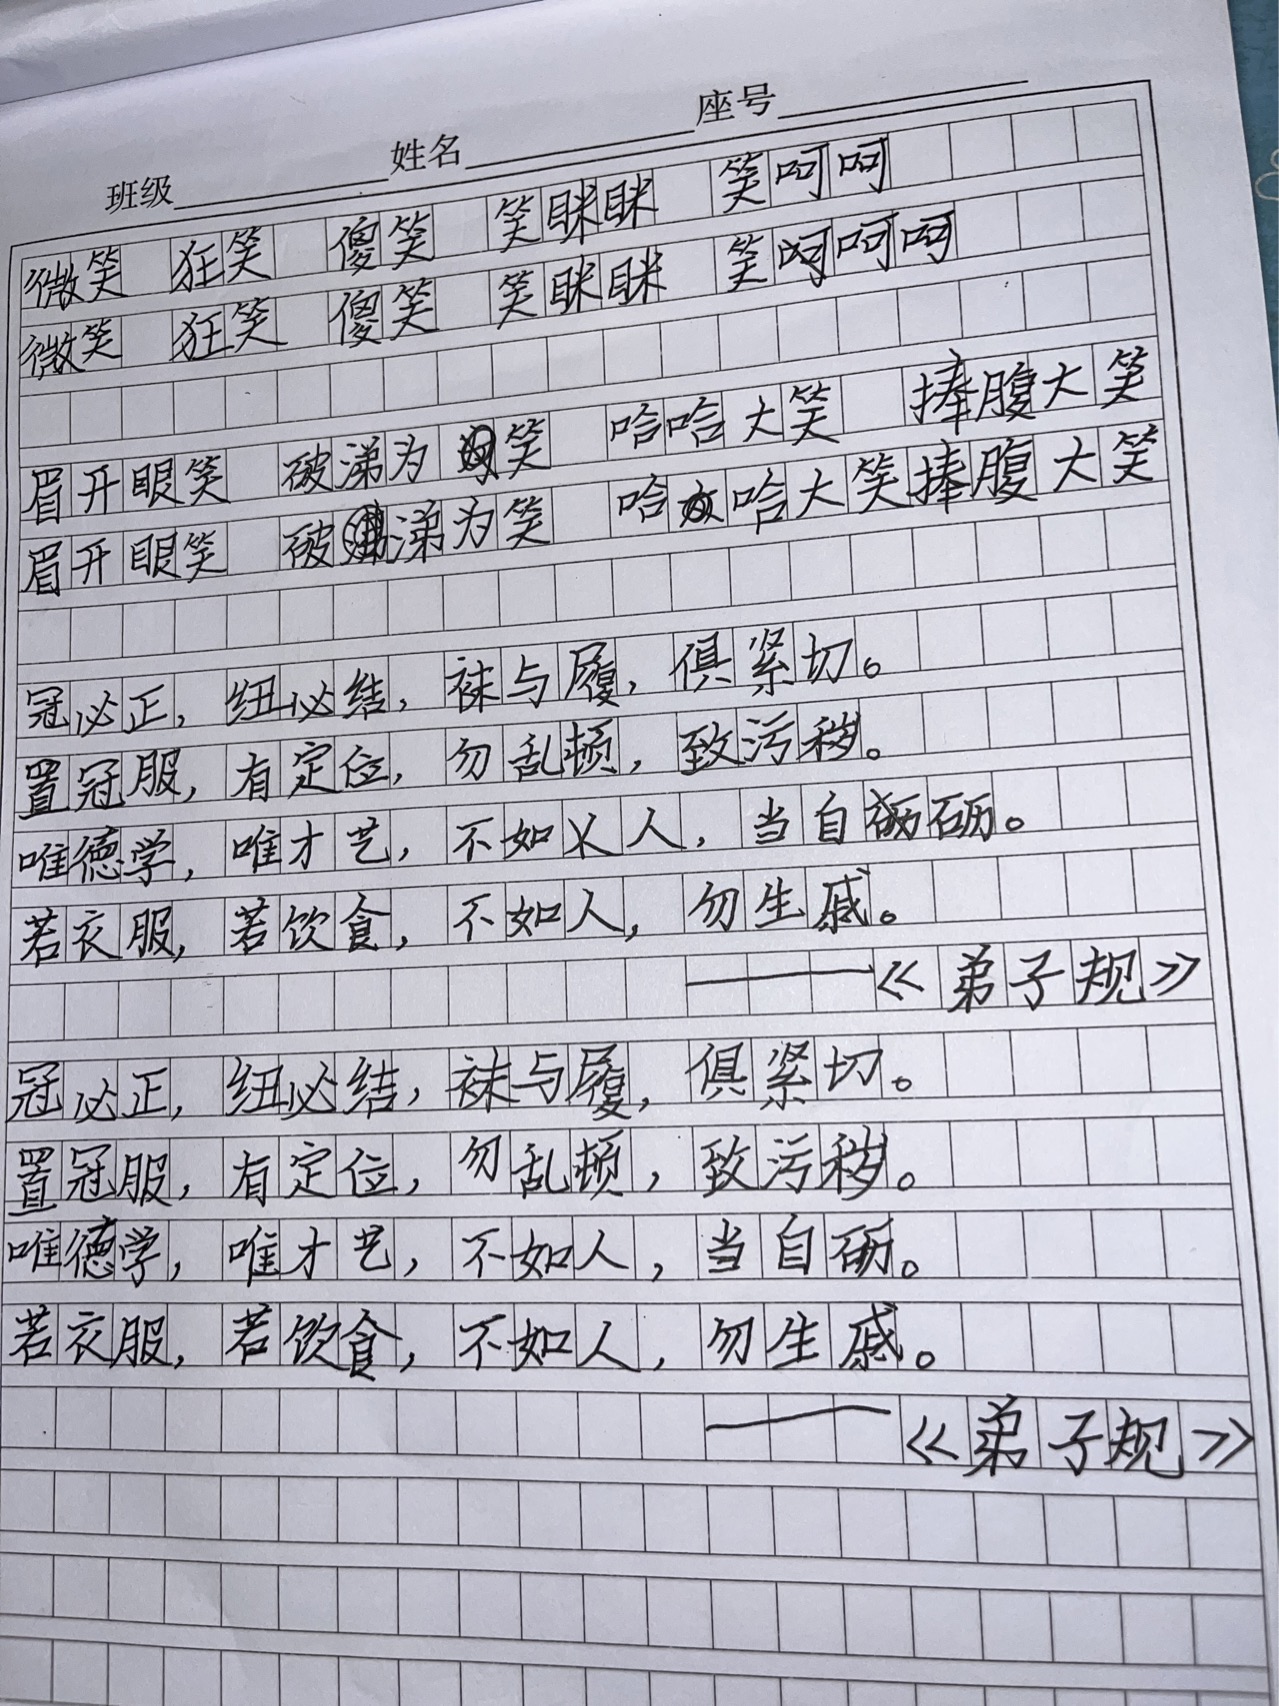 班级 姓名 座号
微笑 狂笑 傻笑 笑眯眯 笑呵呵
微笑 狂笑 傻笑 笑眯眯 笑呵呵呵
眉开眼笑 破涕为笑 哈哈大笑 捧腹大笑
眉开眼笑 破涕为笑 哈哈大笑捧腹大笑
冠必正,纽必结,袜与履,俱紧切。
置冠服,有定位,勿乱顿,致污秽。
唯德学,唯才艺,不如人,当自砺。
若衣服,若饮食,不如人,勿生戚。
——《弟子规》
冠必正,纽必结,袜与履,俱紧切。
置冠服,有定位,勿乱顿,致污秽。
唯德学,唯才艺,不如人,当自砺。
若衣服,若饮食,不如人,勿生戚。
——《弟子规》